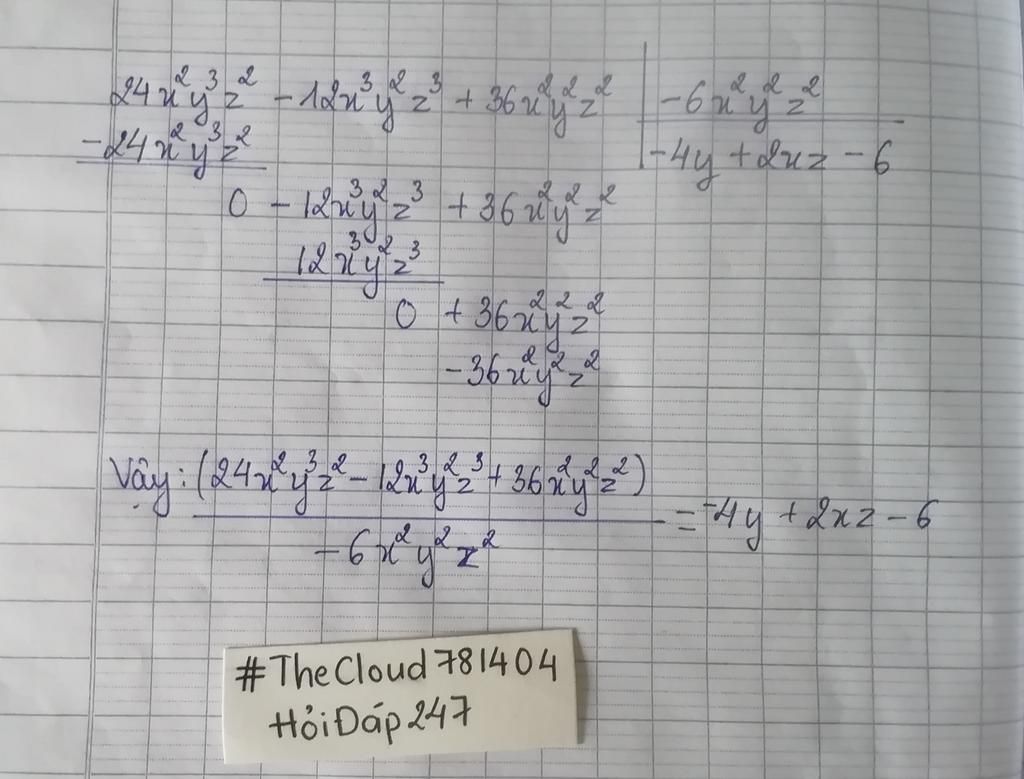 24x²y³z² - 12x³y²z³ + 36x²y²z² | -6x²y²z²
-24x²y³z² | -4y + 2xz - 6
0 - 12x³y²z³ + 36x²y²z²
12x³y²z³
0 + 36x²y²z²
-36x²y²z²
Vậy: (24x²y³z² - 12x³y²z³ + 36x²y²z²)
= -4y + 2xz - 6
-6x²y²z²
#TheCloud781404
HỏiĐáp247